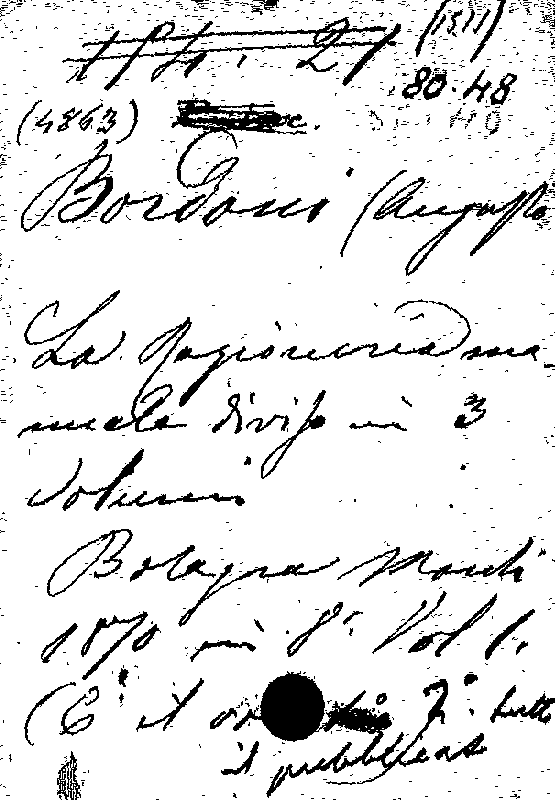 (1511)
154. 27
80.48
(4863)
Bordoni (Augusto
La Ragioneria ma-
nuale diviso in 3
Volumi
Bologna Monti
1870 in 8º. Vol 1.
(È il 2º. tutto
il pubblicato